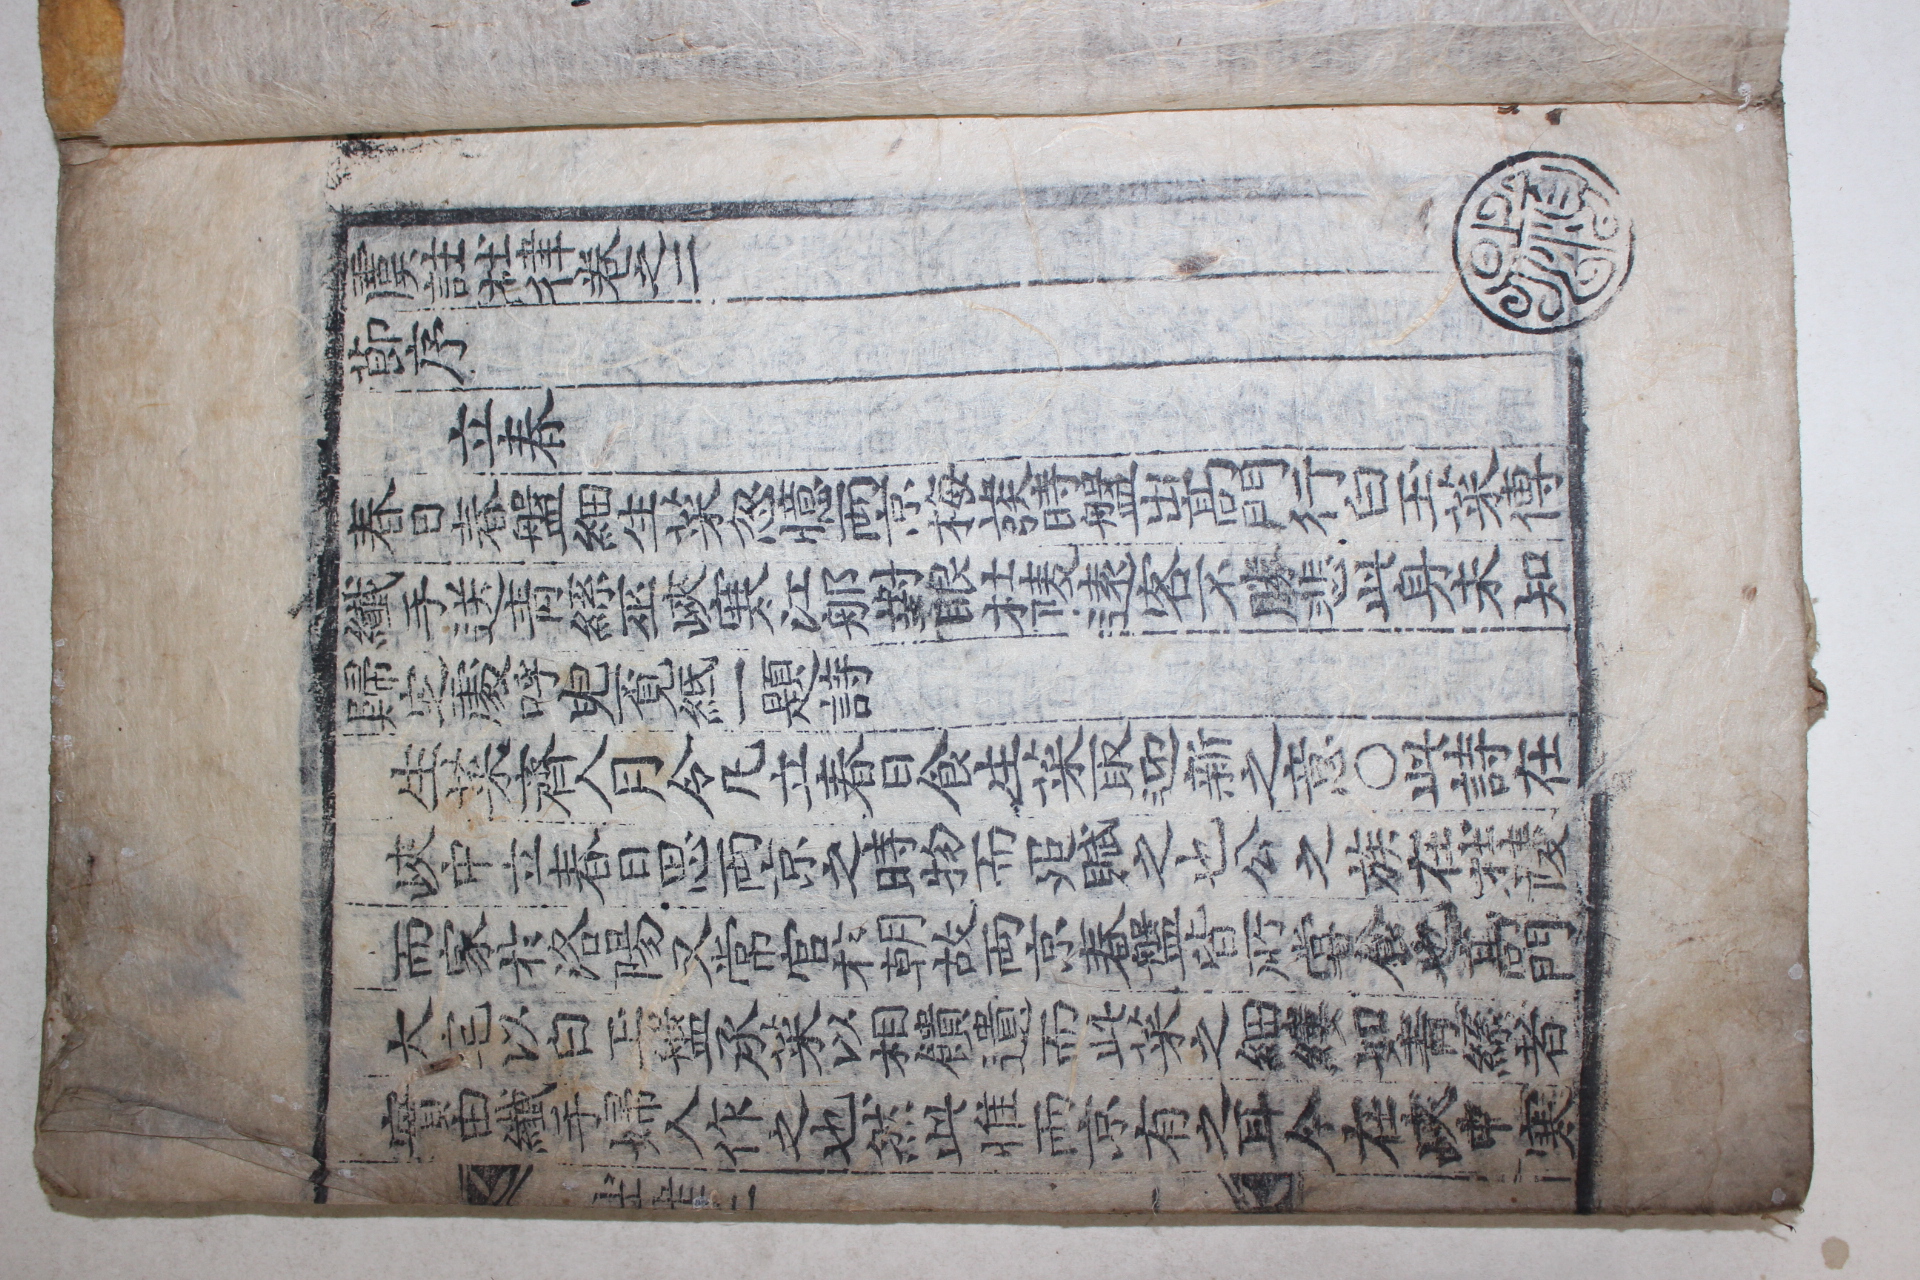 虞註杜律卷之二
節序
立春
春日春盤細生菜忽憶兩京梅發時盤出高門行白玉菜傳
纖手送青絲巫峽寒江那對眼杜陵遠客不勝悲此身未知
歸定處呼兒覓紙一題詩
生菜齊人月令凡立春日食生菜取迎新之意○此詩在
峽中立春日思兩京之時物而追賦之也公之族在杜陵
而家於洛陽又常官於朝故兩京春盤皆所嘗食也高門
大宅以白玉盤承菜以相饋遺而此菜之細縷如青絲者
實由纖手婦人作之也然此惟兩京有之耳今在峽中寒
杜律二